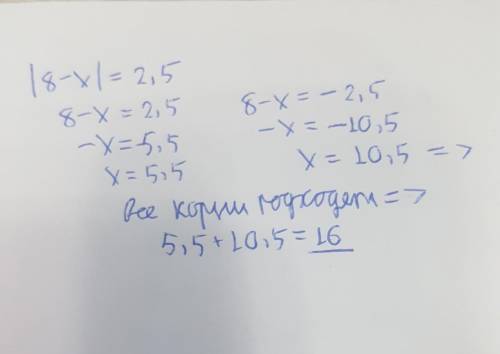 |8-x| = 2,5
8-x = 2,5
-x = -5,5
x = 5,5
8-x = -2,5
-x = -10,5
x = 10,5 =>
Все корни подходят =>
5,5 + 10,5 = 16